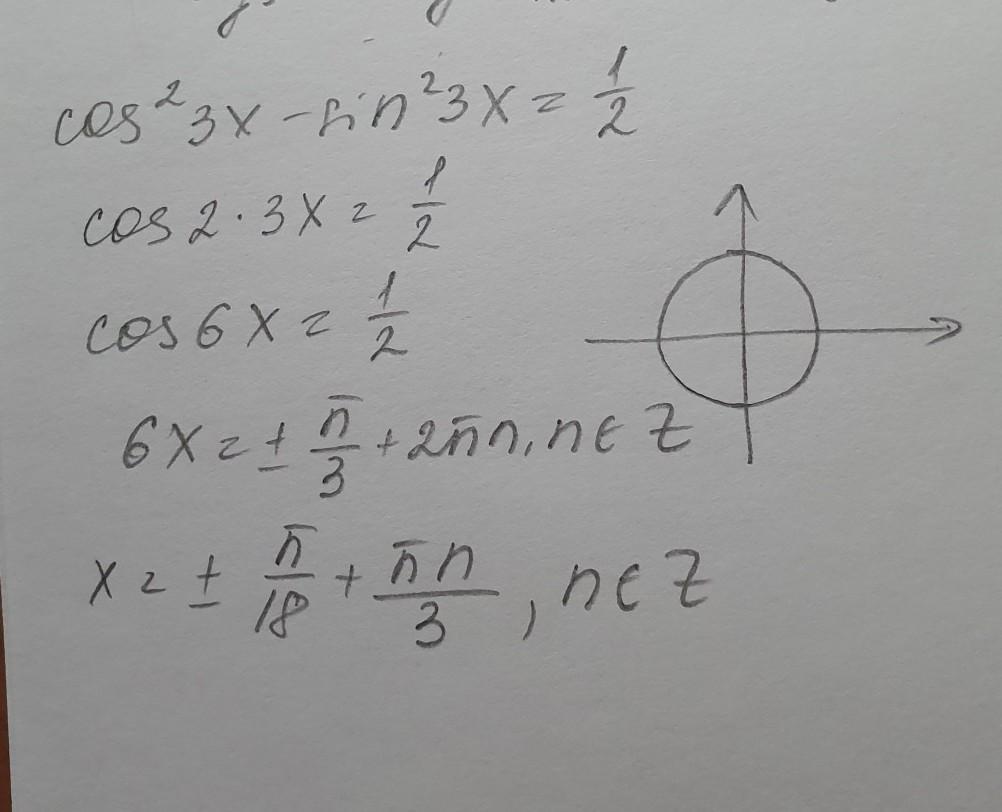 cos²3x - sin²3x = 1/2
cos 2·3x = 1/2
cos 6x = 1/2
6x = ± π/3 + 2πn, n ∈ Z
x = ± π/18 + πn/3, n ∈ Z